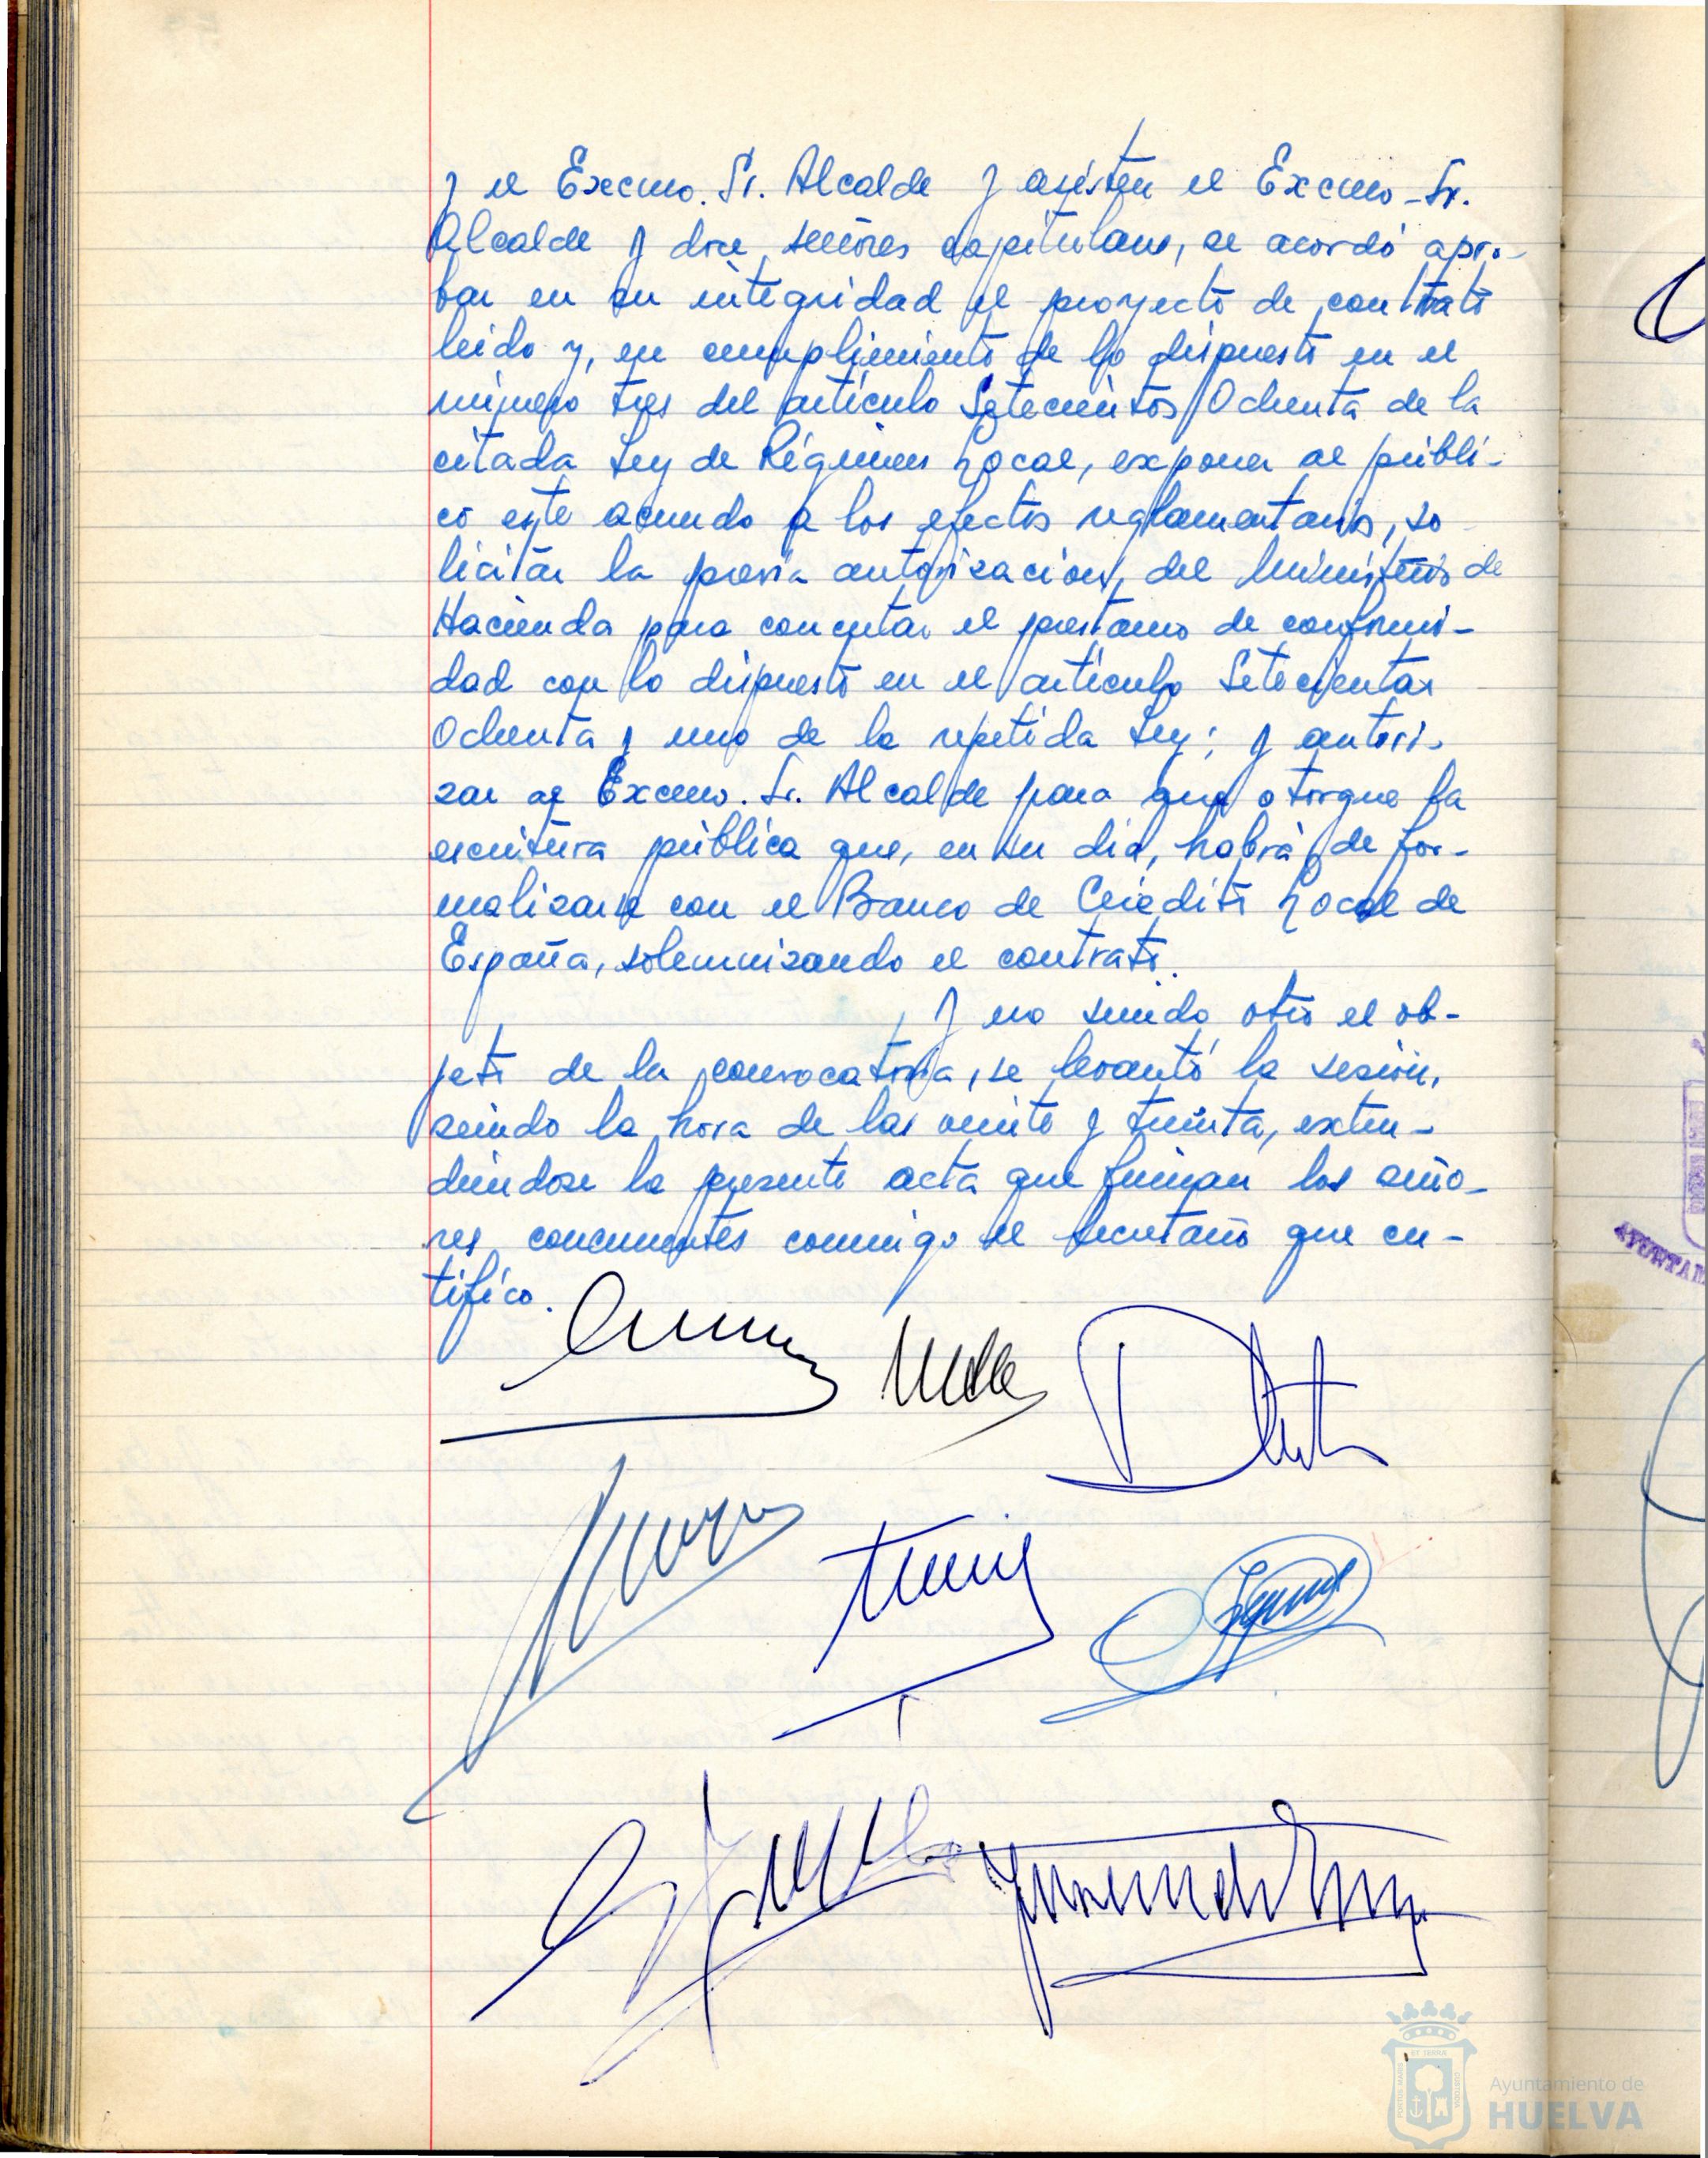 y el Excmo. Sr. Alcalde y asisten el Excmo. Sr.
Alcalde y doce señores capitulares, se acordó apro-
bar en su integridad el proyecto de contrato
leido y, en cumplimiento de lo dispuesto en el
número tres del artículo Setecientos Ochenta de la
citada Ley de Régimen Local, exponer al públi-
co este acuerdo a los efectos reglamentarios, so
licitar la previa autorización, del Ministerio de
Hacienda para concertar el prestamo de conformi-
dad con lo dispuesto en el artículo Setecientos
Ochenta y uno de la repetida Ley; y autori-
zar al Excmo. Sr. Alcalde para que otorgue la
escritura pública que, en su dia, habrá de for-
malizarse con el Banco de Crédito Local de
España, solemnizando el contrato.
Y no siendo otro el ob-
jeto de la convocatoria, se levantó la sesión,
siendo la hora de las veinte y treinta, exten-
diendose la presente acta que firman los seño-
res concurrentes conmigo el Secretario que cer-
tifico.
Ayuntamiento de
HUELVA